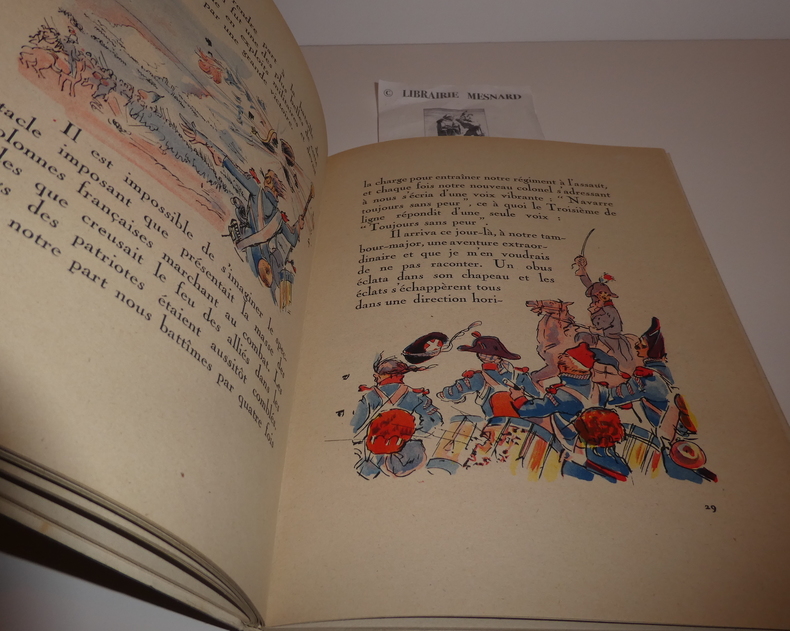 par une grande
Il est impossible de s'imaginer le spec-
tacle imposant que présentait la masse des
colonnes françaises marchant au combat. Les
que creusait le feu des alliés dans les
des patriotes étaient aussitôt comblés.
notre part nous battîmes par quatre fois
© LIBRAIRIE MESNARD
la charge pour entraîner notre régiment à l'assaut,
et chaque fois notre nouveau colonel s'adressant
à nous s'écria d'une voix vibrante : “ Navarre
toujours sans peur ”, ce à quoi le Troisième de
ligne répondit d'une seule voix :
“ Toujours sans peur ”.
Il arriva ce jour-là, à notre tam-
bour-major, une aventure extraor-
dinaire et que je m'en voudrais
de ne pas raconter. Un obus
éclata dans son chapeau et les
éclats s'échappèrent tous
dans une direction hori-
29